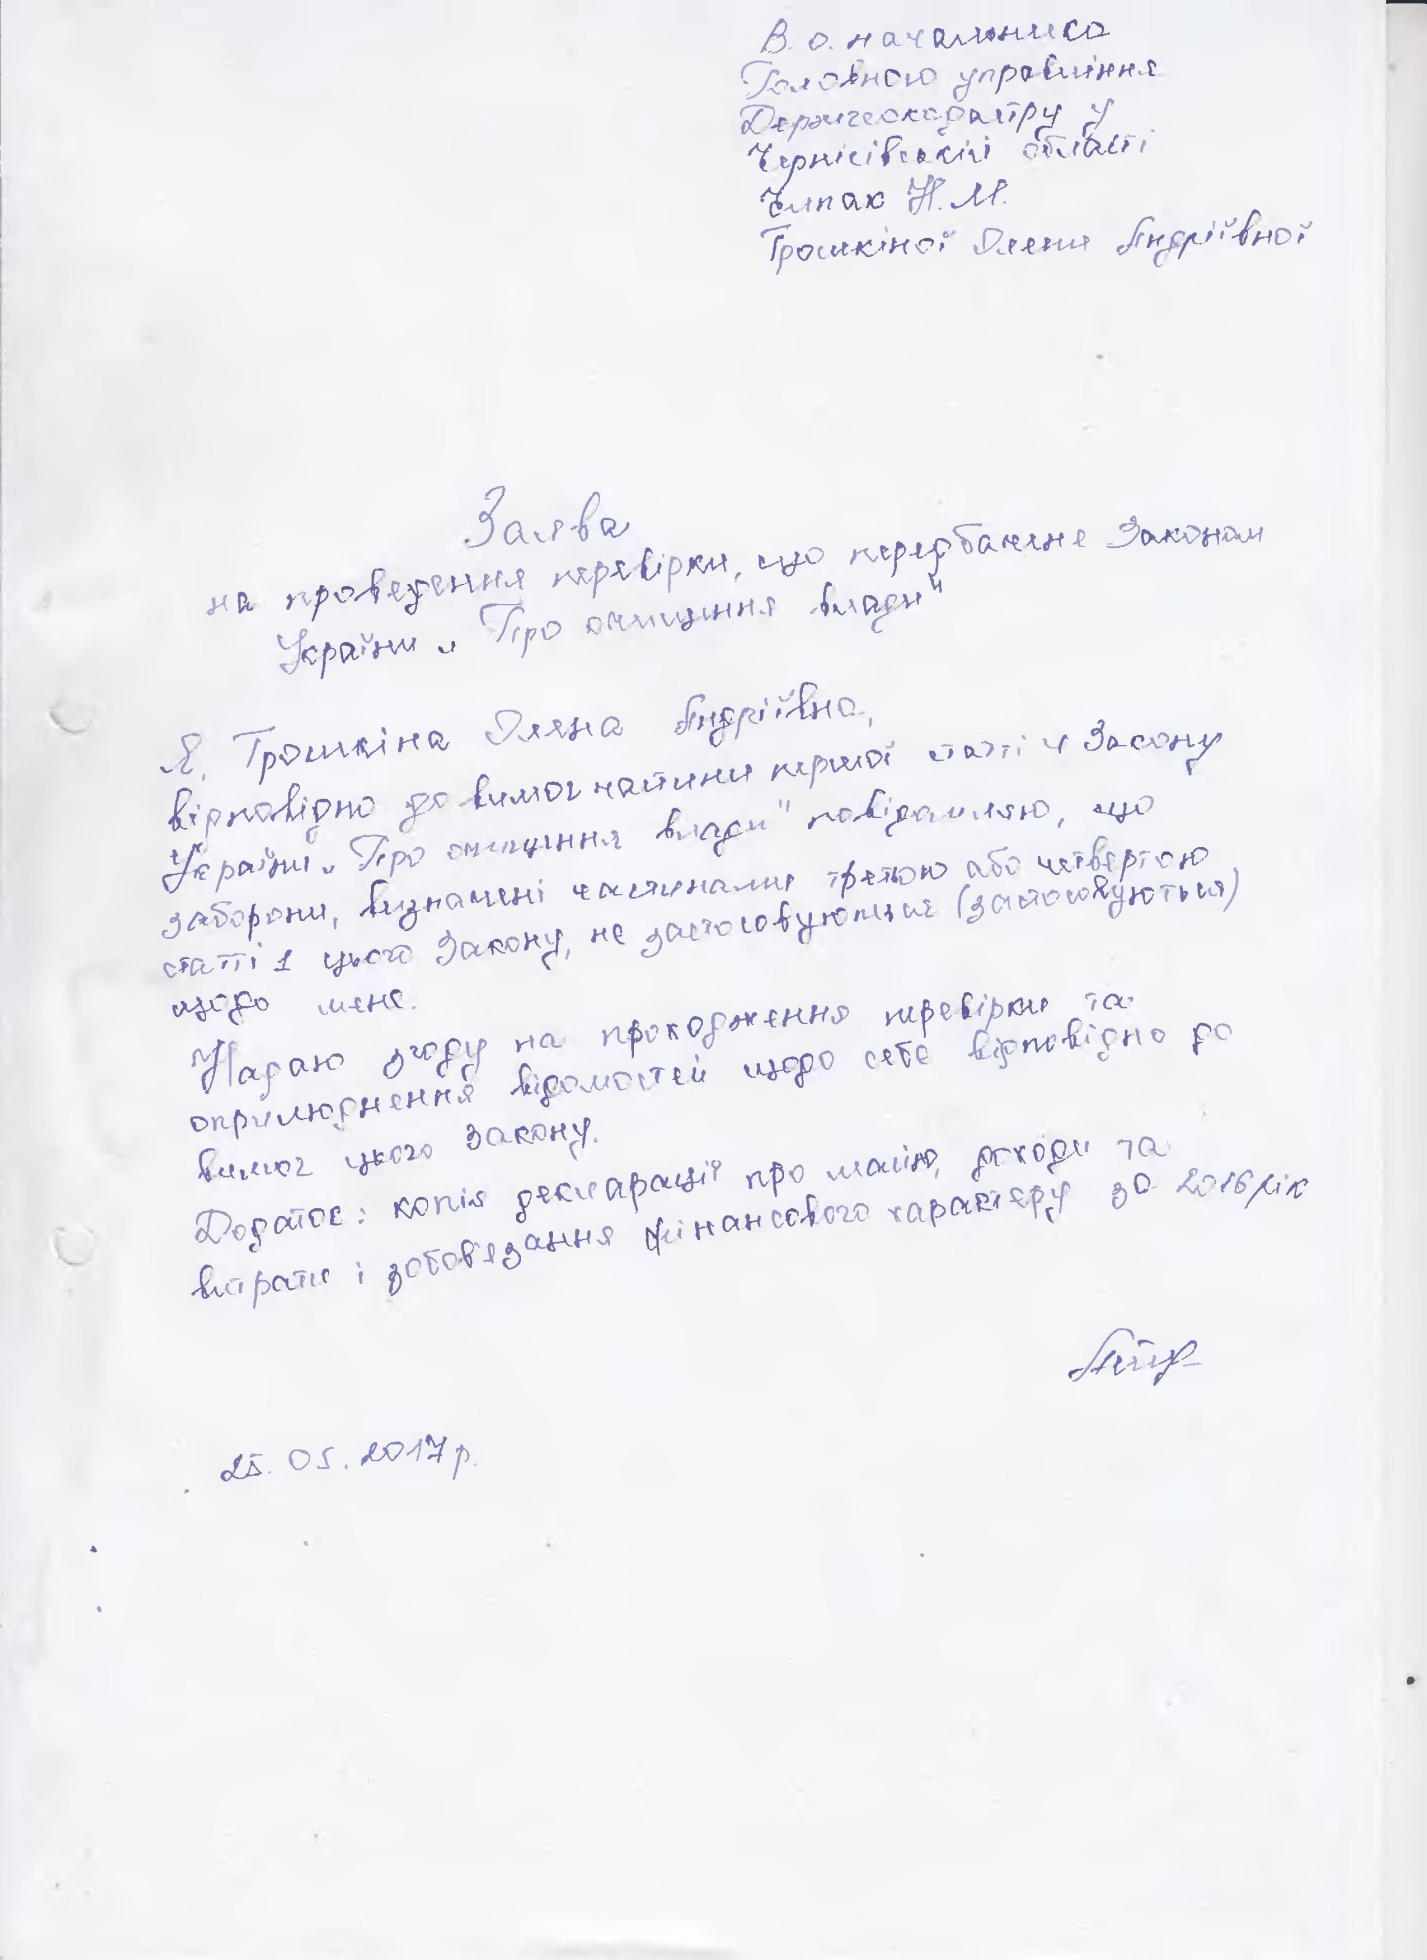 В. о. начальника
Головного управління
Держгеокадастру у
Чернігівській області
Чипак Н. М.
Трошкіної Олени Андріївної
Заява
на проведення перевірки, що передбачене Законом
України „Про очищення влади"
Я, Трошкіна Олена Андріївна,
відповідно до вимог частини першої статті 4 Закону
України „Про очищення влади" повідомляю, що
заборони, визначені частинами третьою або четвертою
статті 1 цього Закону, не застосовуються (застосовуються)
щодо мене.
Надаю згоду на проходження перевірки та
оприлюднення відомостей щодо себе відповідно до
вимог цього Закону.
Додаток: копія декларації про майно, доходи та
витрати і зобов'язання фінансового характеру за 2016 рік
25. 05. 2017 р.